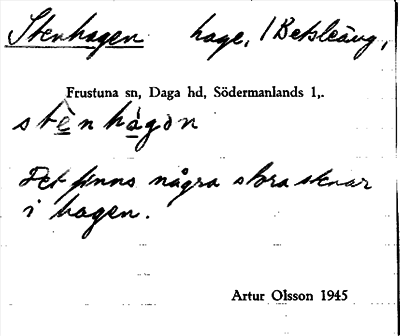 Stenhagen hage, / Betsläng,
Frustuna sn, Daga hd, Södermanlands l,.
stènhàgɔn
Det finns några stora stenar
i hagen.
Artur Olsson 1945